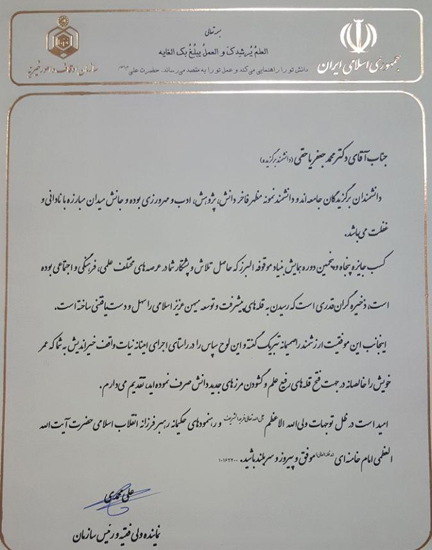 بسمه تعالی
العلم یُرشدک و العمل یبلُغ بک الغایه
دانش تو را راهنمایی می‌کند و عمل تو را به مقصد می‌رساند. حضرت علی
جمهوری اسلامی ایران
سازمان اوقاف و امور خیریه
جناب آقای دکتر محمد جعفر یاحقی (دانشمند برگزیده)
دانشمندان برگزیدگان جامعه‌اند و دانشمند نمونه مظهر فاخر دانش، پژوهش، ادب و مهرورزی بوده و جانش میدان مبارزه با نادانی و
غفلت می‌باشد.
کسب جایزه پنجاه و پنجمین دوره همایش بنیاد موقوفه البرز که حاصل تلاش و پشتکار شما در عرصه‌های مختلف علمی، فرهنگی و اجتماعی بوده
است، ذخیره گران قدری است که رسیدن به قله‌های پیشرفت و توسعه میهن عزیز اسلامی را سهل و دست یافتنی ساخته است.
اینجانب این موفقیت ارزشمند را صمیمانه تبریک گفته و این لوح سپاس را در راستای اجرای امینانه نیات واقف خیراندیش به شما که عمر
خویش را خالصانه در جهت فتح قله‌های رفیع علم و گشودن مرزهای جدید دانش صرف نموده اید، تقدیم می‌دارم.
امید است در ظل توجهات ولی‌الله الاعظم و رهنمودهای حکیمانه رهبر فرزانه انقلاب اسلامی حضرت آیت الله
العظمی امام خامنه‌ای موفق و پیروز و سربلند باشید.
علی محمدی
نماینده ولی فقیه و رئیس سازمان